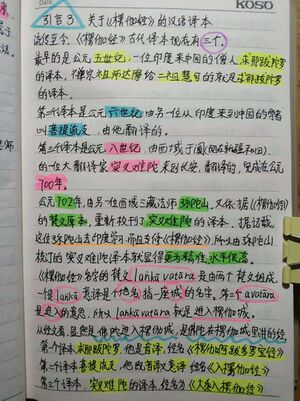 Date
KOSO
引言3 关于《楞伽经》的汉语译本
流传至今,《楞伽经》古代译本现存有三个。
最早的是公元五世纪,一位印度来中国的僧人,求那跋陀罗
的译本,禅宗祖师达摩给二祖慧可的就是求那跋陀罗
的译本。
第二个译本是公元六世纪由另一位从印度来到中国的学者
叫菩提流支,由他翻译的。
第三个译本是公元八世纪,由西域于阗(现在新疆和田)
的一位大翻译家实叉难陀来到长安,翻译的,完成在公元
700年。
公元702年,由另一位西域三藏法师弥陀山,又依据《楞伽经》
的梵文原本,重新校刊了实叉难陀的译本。据记载,
这位弥陀山去印度学习而且专修《楞伽经》,所以由弥陀山
校订的实叉难陀译本就显得更为精准,水平很高。
《楞伽经》经名的梵文 lankā vatāra 是由两个梵文组成,
一个是 lankā 意译是个地名,指一座城的名字。第二个 avatāra
是进入的意思,所以 lankāvatāra 就是进入楞伽城。
从经文看,显然是佛陀进入楞伽城,是佛陀在楞伽城里讲的经
第一个译本求那跋陀罗,他是音译,经名《楞伽阿跋多罗宝经》
第二个译本菩提流支,他既音译又意译 经名《入楞伽经》
第三个译本,实叉难陀的译本,经名《大乘入楞伽经》